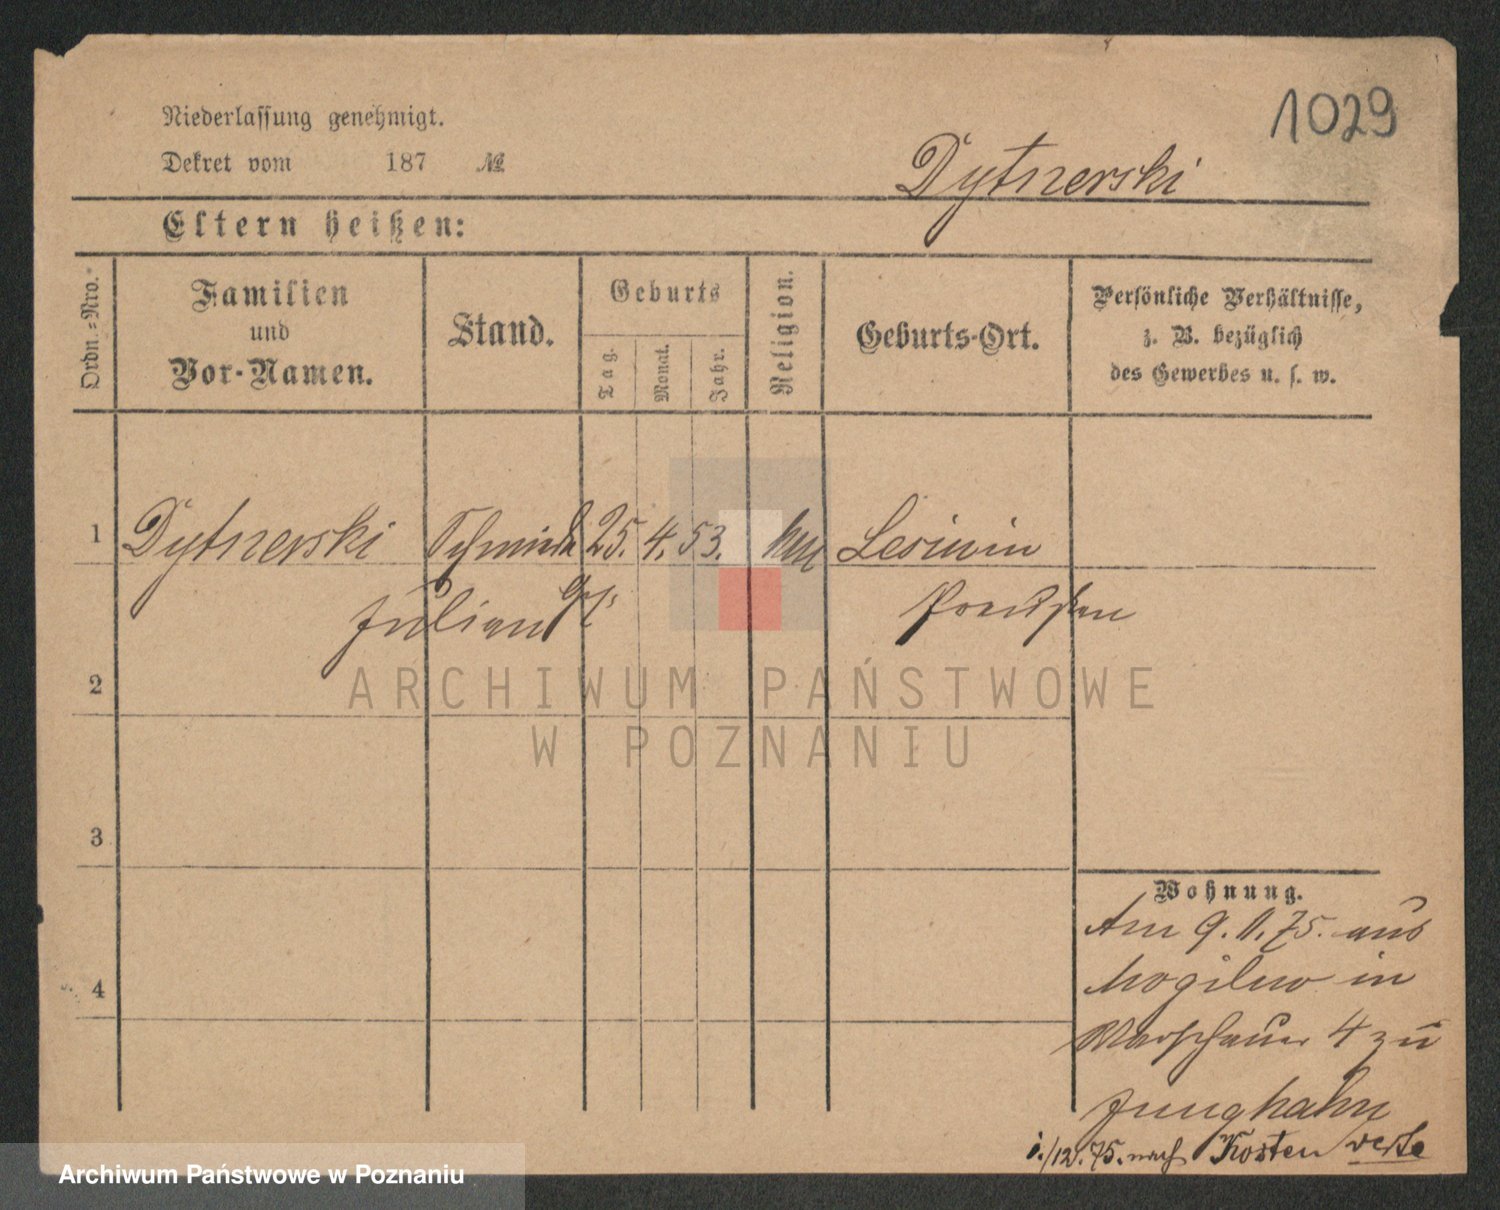 1029
Niederlassung genehmigt.
Dekret vom 187 №
Dytnerski
Eltern heißen:
Ordn.-Nro.
Familien
und
Vor-Namen.
Stand.
Geburts
Tag.
Monat.
Jahr.
Religion.
Geburts-Ort.
Persönliche Verhältnisse,
z. B. bezüglich
des Gewerbes u. s. w.
1 Dytnerski Schmiede 25. 4. 53.
Julian Preußen
2
3
4
Wohnung.
Am 9. 11. 75. aus
Mogilno in
Warschauer 4 zu
Junghahn
i./12. 75. nach Kosten
ARCHIWUM PAŃSTWOWE
W POZNANIU
Archiwum Państwowe w Poznaniu